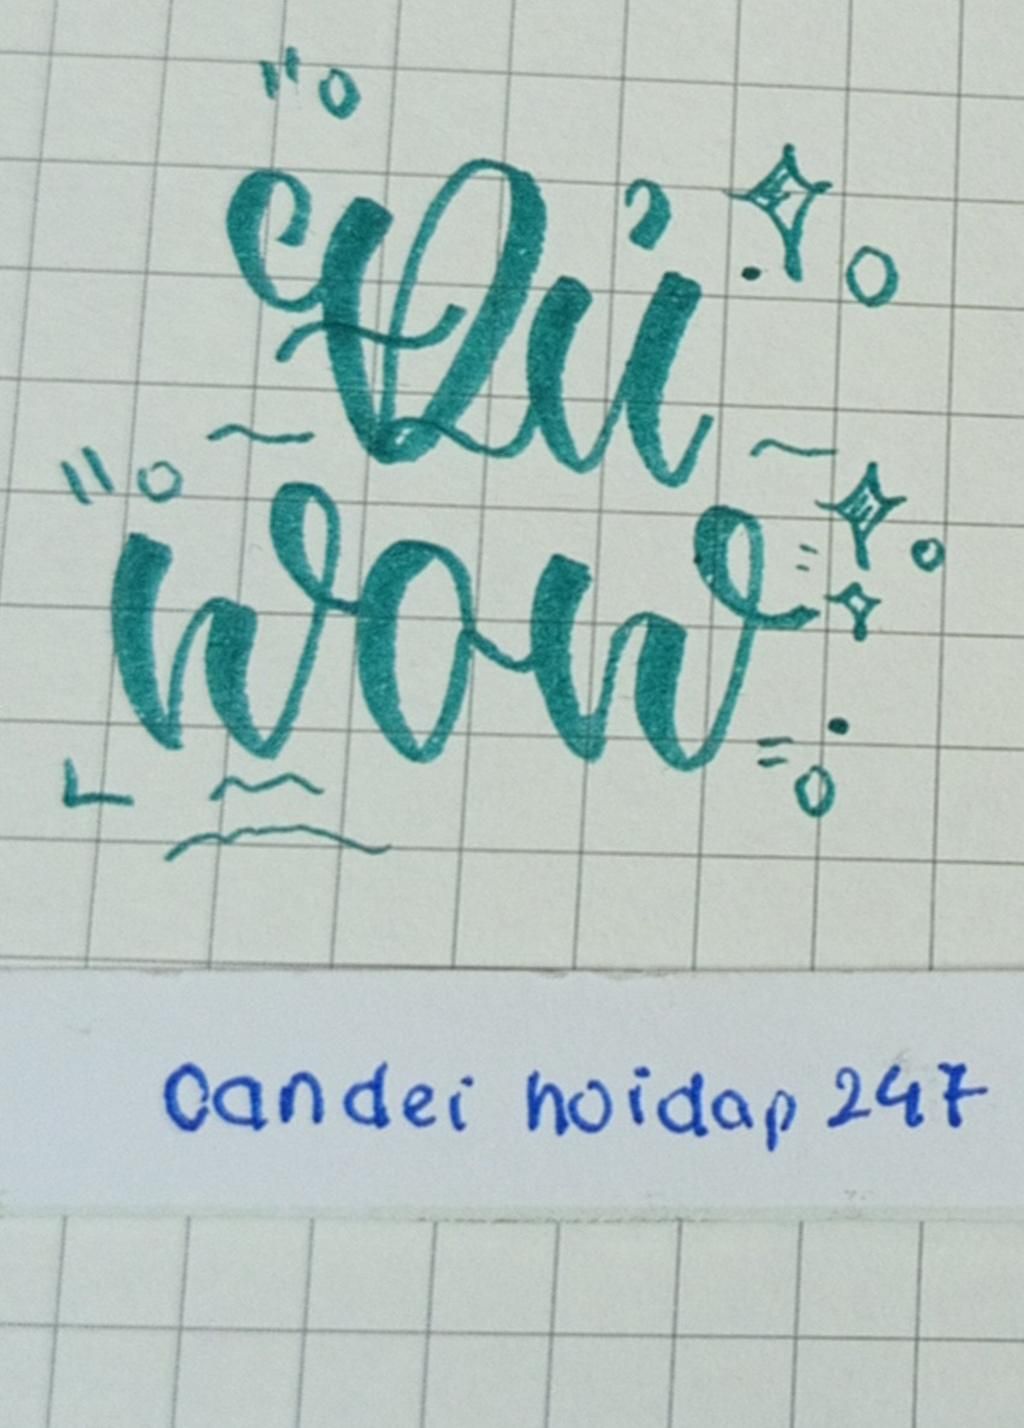 Đủ
wow
candei hoidap 247